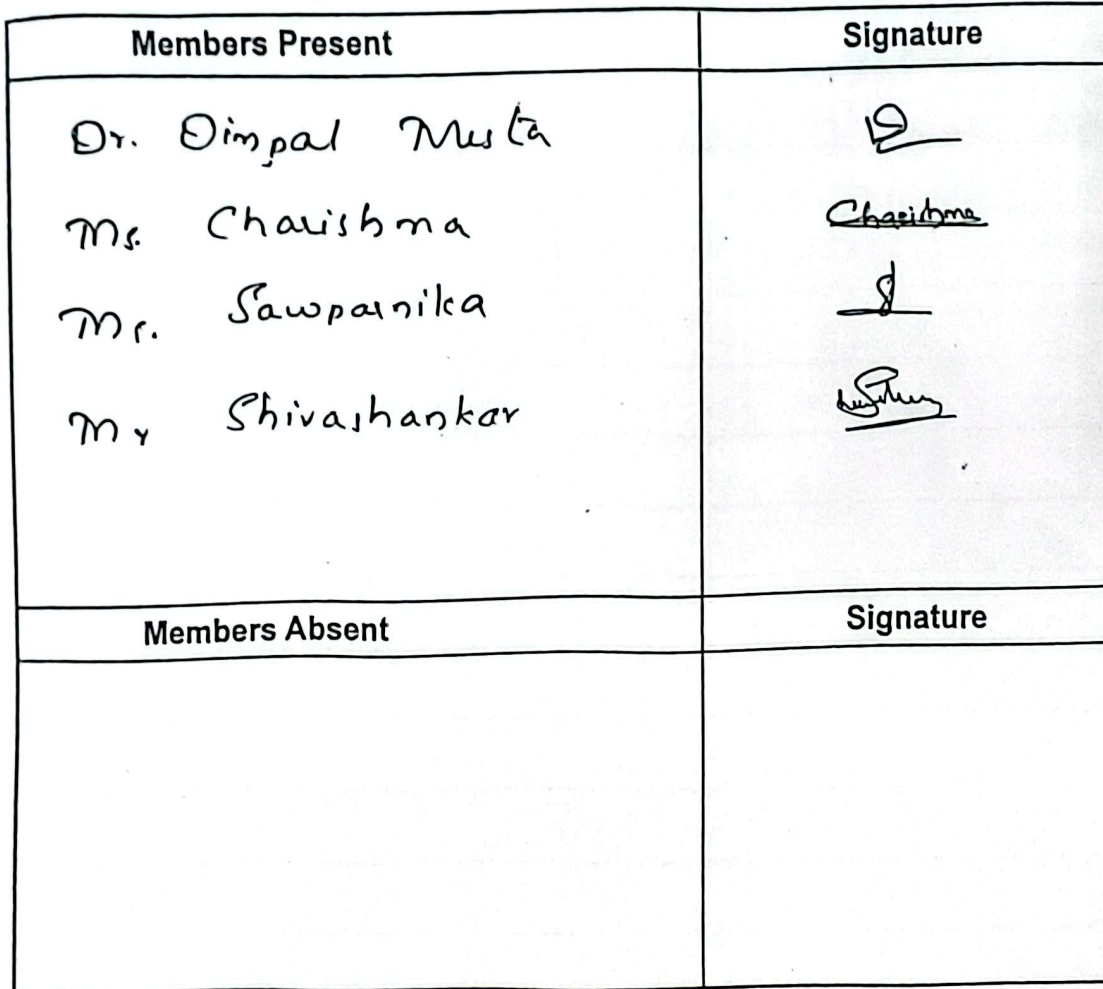 Members Present Signature
Dr. Dimpal Mesta
Ms. Charishma Charishma
Ms. Sawparnika
Mr Shivashankar
Members Absent Signature